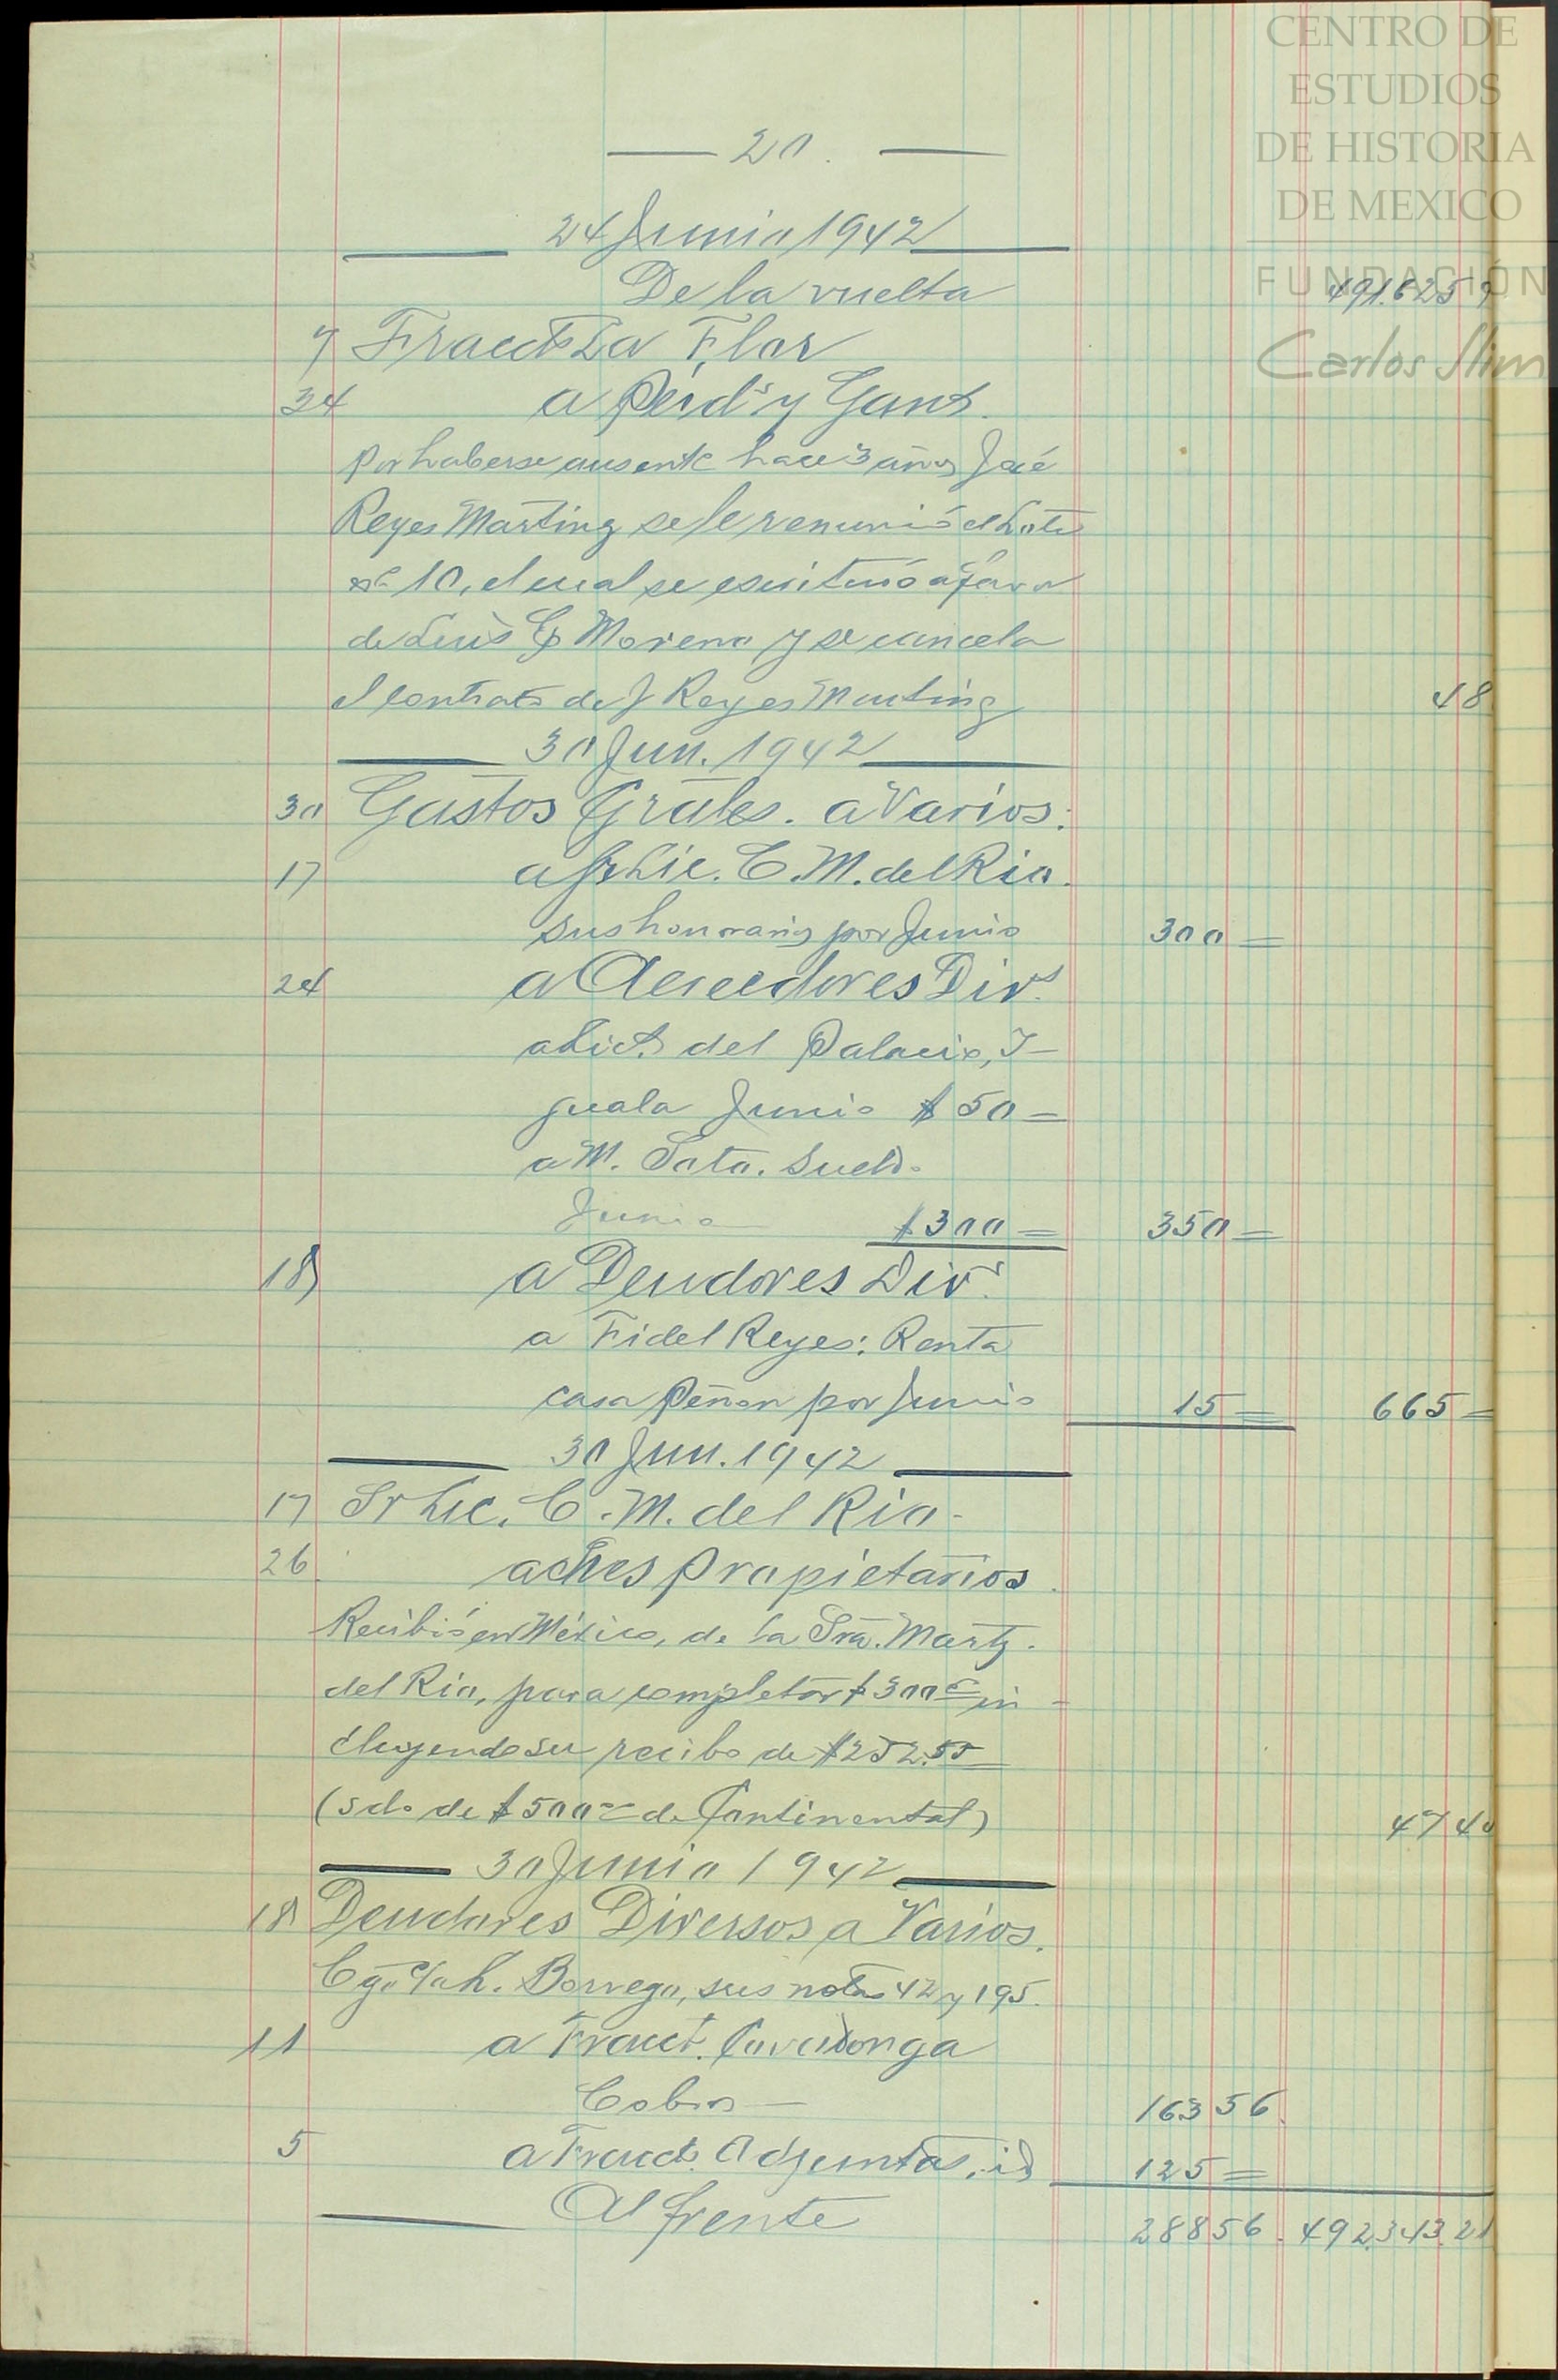 CENTRO DE
ESTUDIOS
DE HISTORIA
DE MEXICO
FUNDACIÓN
Carlos Slim
20.
24 Junio 1942
De la vuelta 491.625
7 Fracct La Flor
34 a Pérds y Gans.
por haberse ausente hace 3 años José
Reyes Marting se le renunió el Lote
no 10, el cual se escrituró a favor
de Luis G Moreno y se cancela
el contrato de J Reyes Marting 48
30 Jun. 1942
30 Gastos Grales. a Varios:
17 a Sr Lic. C. M. del Rio.
sus honorarios por Junio 300 =
24 a Acreedores Divs.
a Lict. del Palacio, I-
guala Junio $ 50 =
a M. Soto. Sueldo
Junio $300 = 350 =
18 a Deudores Divs.
a Fidel Reyes: Renta
casa Peñon por Junio 15 = 665 =
30 Jun. 1942
17 Sr Lic. C. M. del Rio.
26 a Ctes propietarios.
Recibió en México, de la Sra. Martz.
del Rio, para completar $300 in-
cluyendo su recibo de $252.55
(sdo de $500 de Continental) 47 40
30 Junio 1942
18 Deudores Diversos a Varios.
Cgo c/a L. Borrego, sus notas 42 y 195.
11 a Fracct. Covadonga
Cobros 163 56
5 a Fracct. Adjuntas, id 125 =
Al frente 288 56. 492.343.21